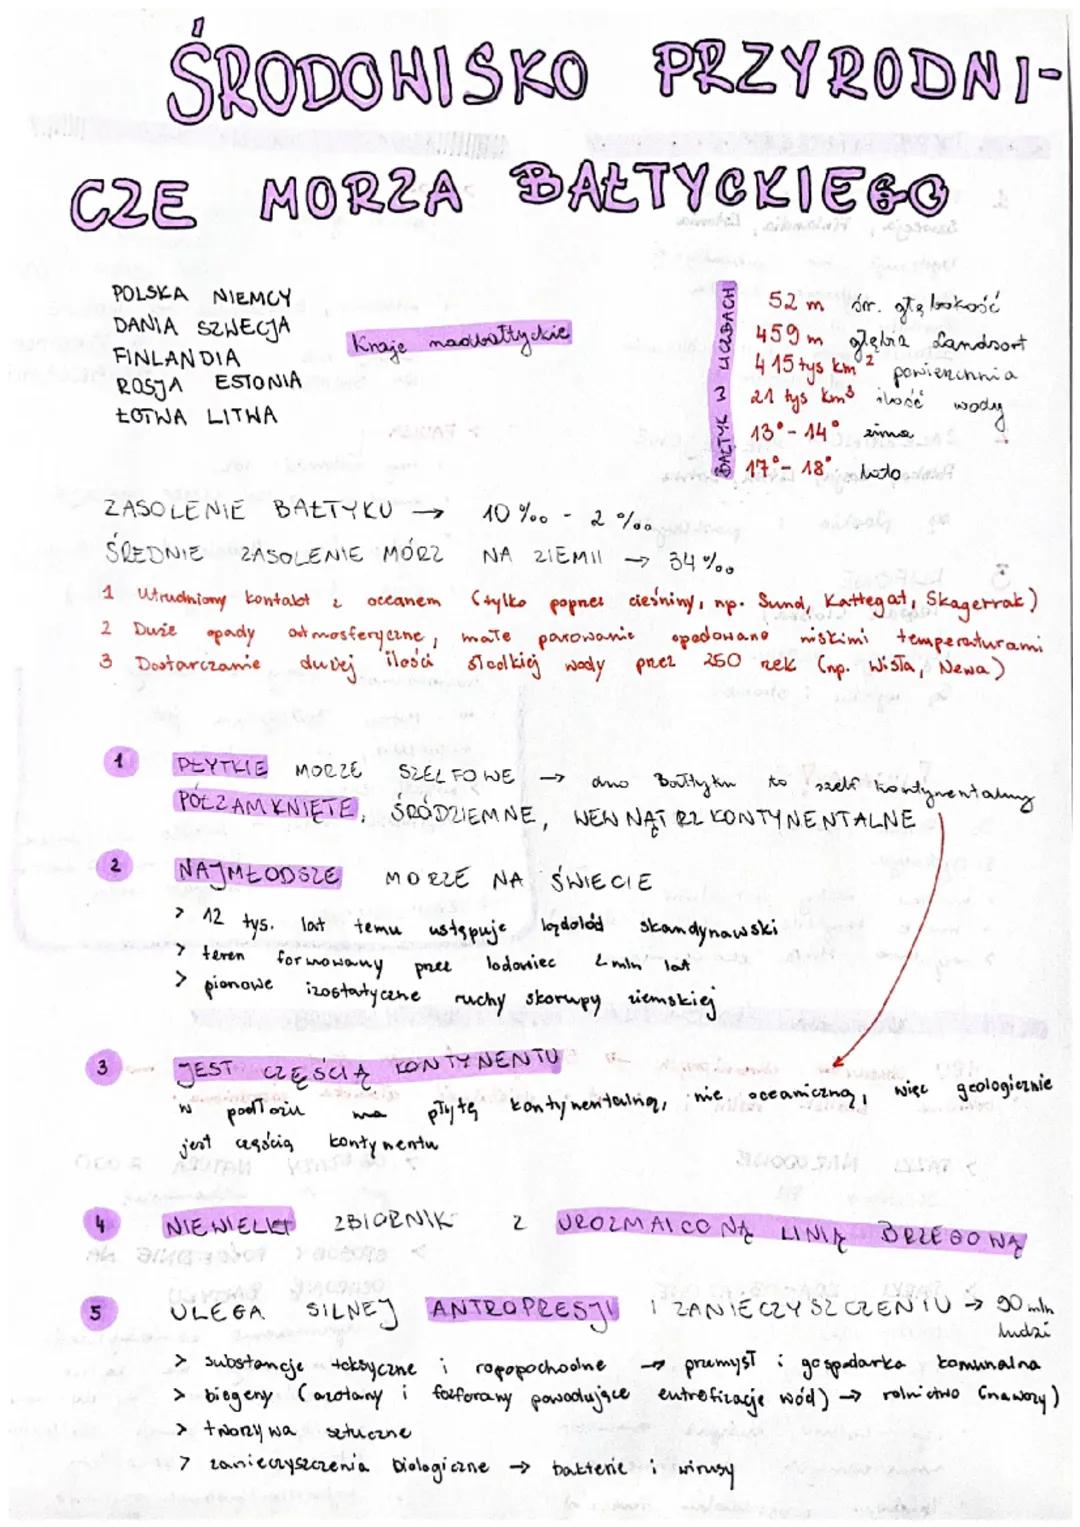 ŚRODOWISKO PRZYRODNI-
CZE MORZA BAŁTYCKIEGO
POLSKA NIEMCY
DANIA SZWECJA
FINLANDIA
ROSJA ESTONIA
ŁOTWA LITWA
Kraje nadbałtyckie
BAŁTYK W LICZBACH
52 m śr. głębokość
459 m głębia Landsort
415 tys km² powierzchnia
21 tys km³ ilość wody
13° - 14° zima
17° - 18° lato
ZASOLENIE BAŁTYKU → 10 ‰ - 2 ‰
ŚREDNIE ZASOLENIE MÓRZ NA ZIEMII → 34 ‰
1 Utrudniony kontakt z oceanem (tylko poprzez cieśniny, np. Sund, Kattegat, Skagerrak)
2 Duże opady atmosferyczne, małe parowanie spodowane niskimi temperaturami
3 Dostarczanie dużej ilości słodkiej wody przez 250 rzek (np. Wisła, Newa)
1 PŁYTKIE MORZE SZELFOWE → dno Bałtyku to szelf kontynentalny
PÓŁZAMKNIĘTE, ŚRÓDZIEMNE, WEWNĄTRZKONTYNENTALNE
2 NAJMŁODSZE MORZE NA ŚWIECIE
> 12 tys. lat temu ustępuje lądolód skandynawski
> teren formowany przez lodowiec 2 mln lat
> pionowe izostatyczne ruchy skorupy ziemskiej
3 JEST CZĘŚCIĄ KONTYNENTU
w podłożu ma płytę kontynentalną, nie oceaniczną, więc geologicznie
jest częścią kontynentu
4 NIEWIELKI ZBIORNIK Z UROZMAICONĄ LINIĄ BRZEGOWĄ
5 ULEGA SILNEJ ANTROPRESJI I ZANIECZYSZCZENIU → 90 mln
ludzi
> substancje toksyczne i ropopochodne → przemysł i gospodarka komunalna
> biogeny (azotany i fosforany powodujące eutrofizację wód) → rolnictwo (nawozy)
> tworzywa sztuczne
> zanieczyszczenia biologiczne → bakterie i wirusy